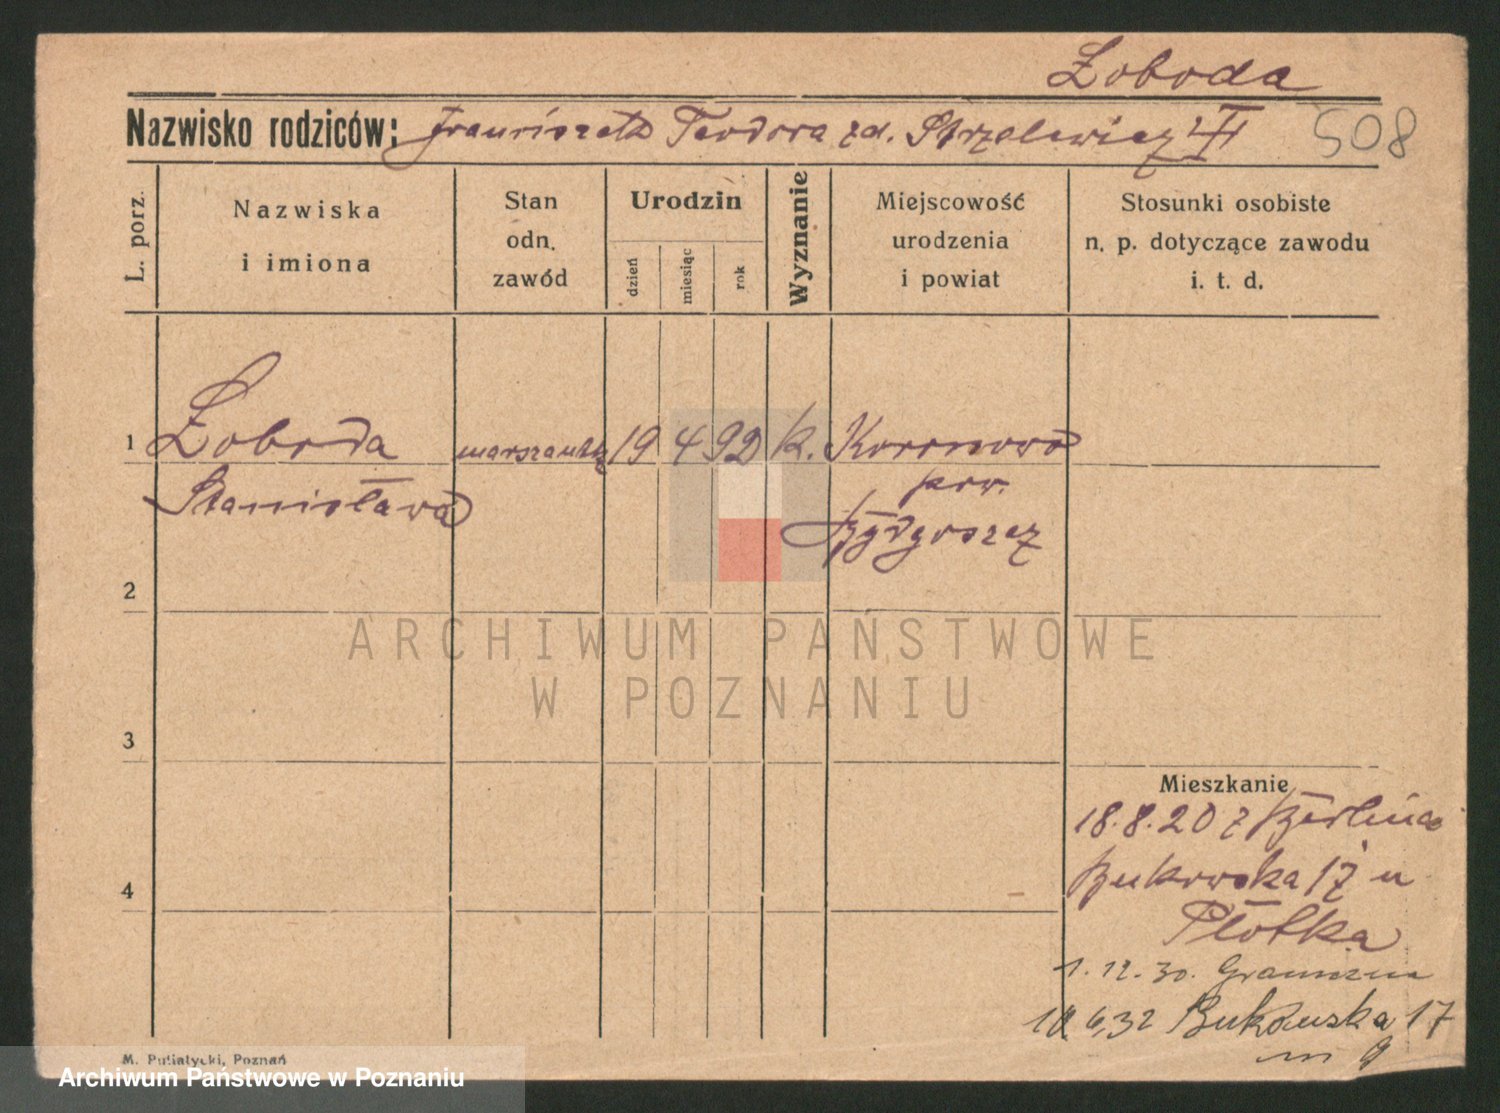 Łoboda
Nazwisko rodziców: Franciszek Teodora zd. Strzelewicz
508
L. porz.
Nazwiska
i imiona
Stan
odn.
zawód
Urodzin
dzień
miesiąc
rok
Wyznanie
Miejscowość
urodzenia
i powiat
Stosunki osobiste
n. p. dotyczące zawodu
i. t. d.
1 Łoboda 19 4 92 k. Koronowo
Stanisława pow.
Bydgoszcz
2
3
4
Mieszkanie
18.8.20 z Berlina
Bukowska 17 u
Płotka
1.12.30.
6.32 Bukowska 17
m 9
M. Putiatycki, Poznań
ARCHIWUM PAŃSTWOWE
W POZNANIU
Archiwum Państwowe w Poznaniu